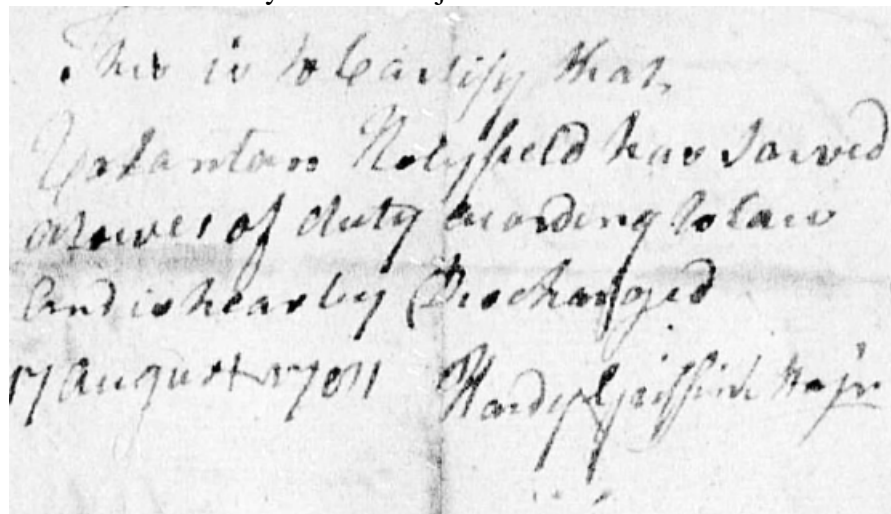 This is to Cartify that
Holyfield has Sarved
a Tower of duty acording to law
and is hearby Discharged
17 August 1781 Hardy Griffin Majr